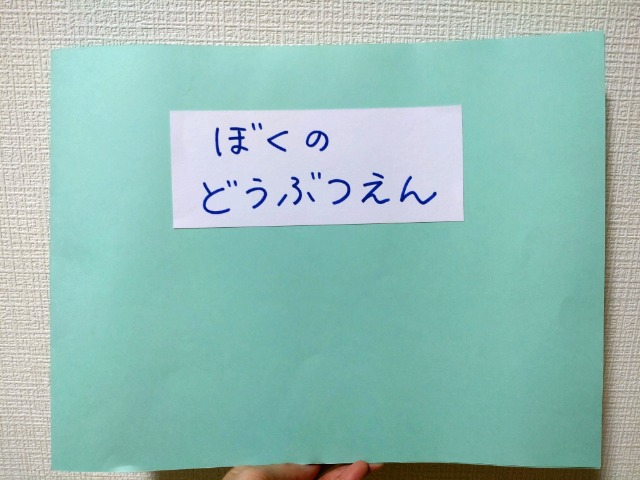 ぼくの
どうぶつえん